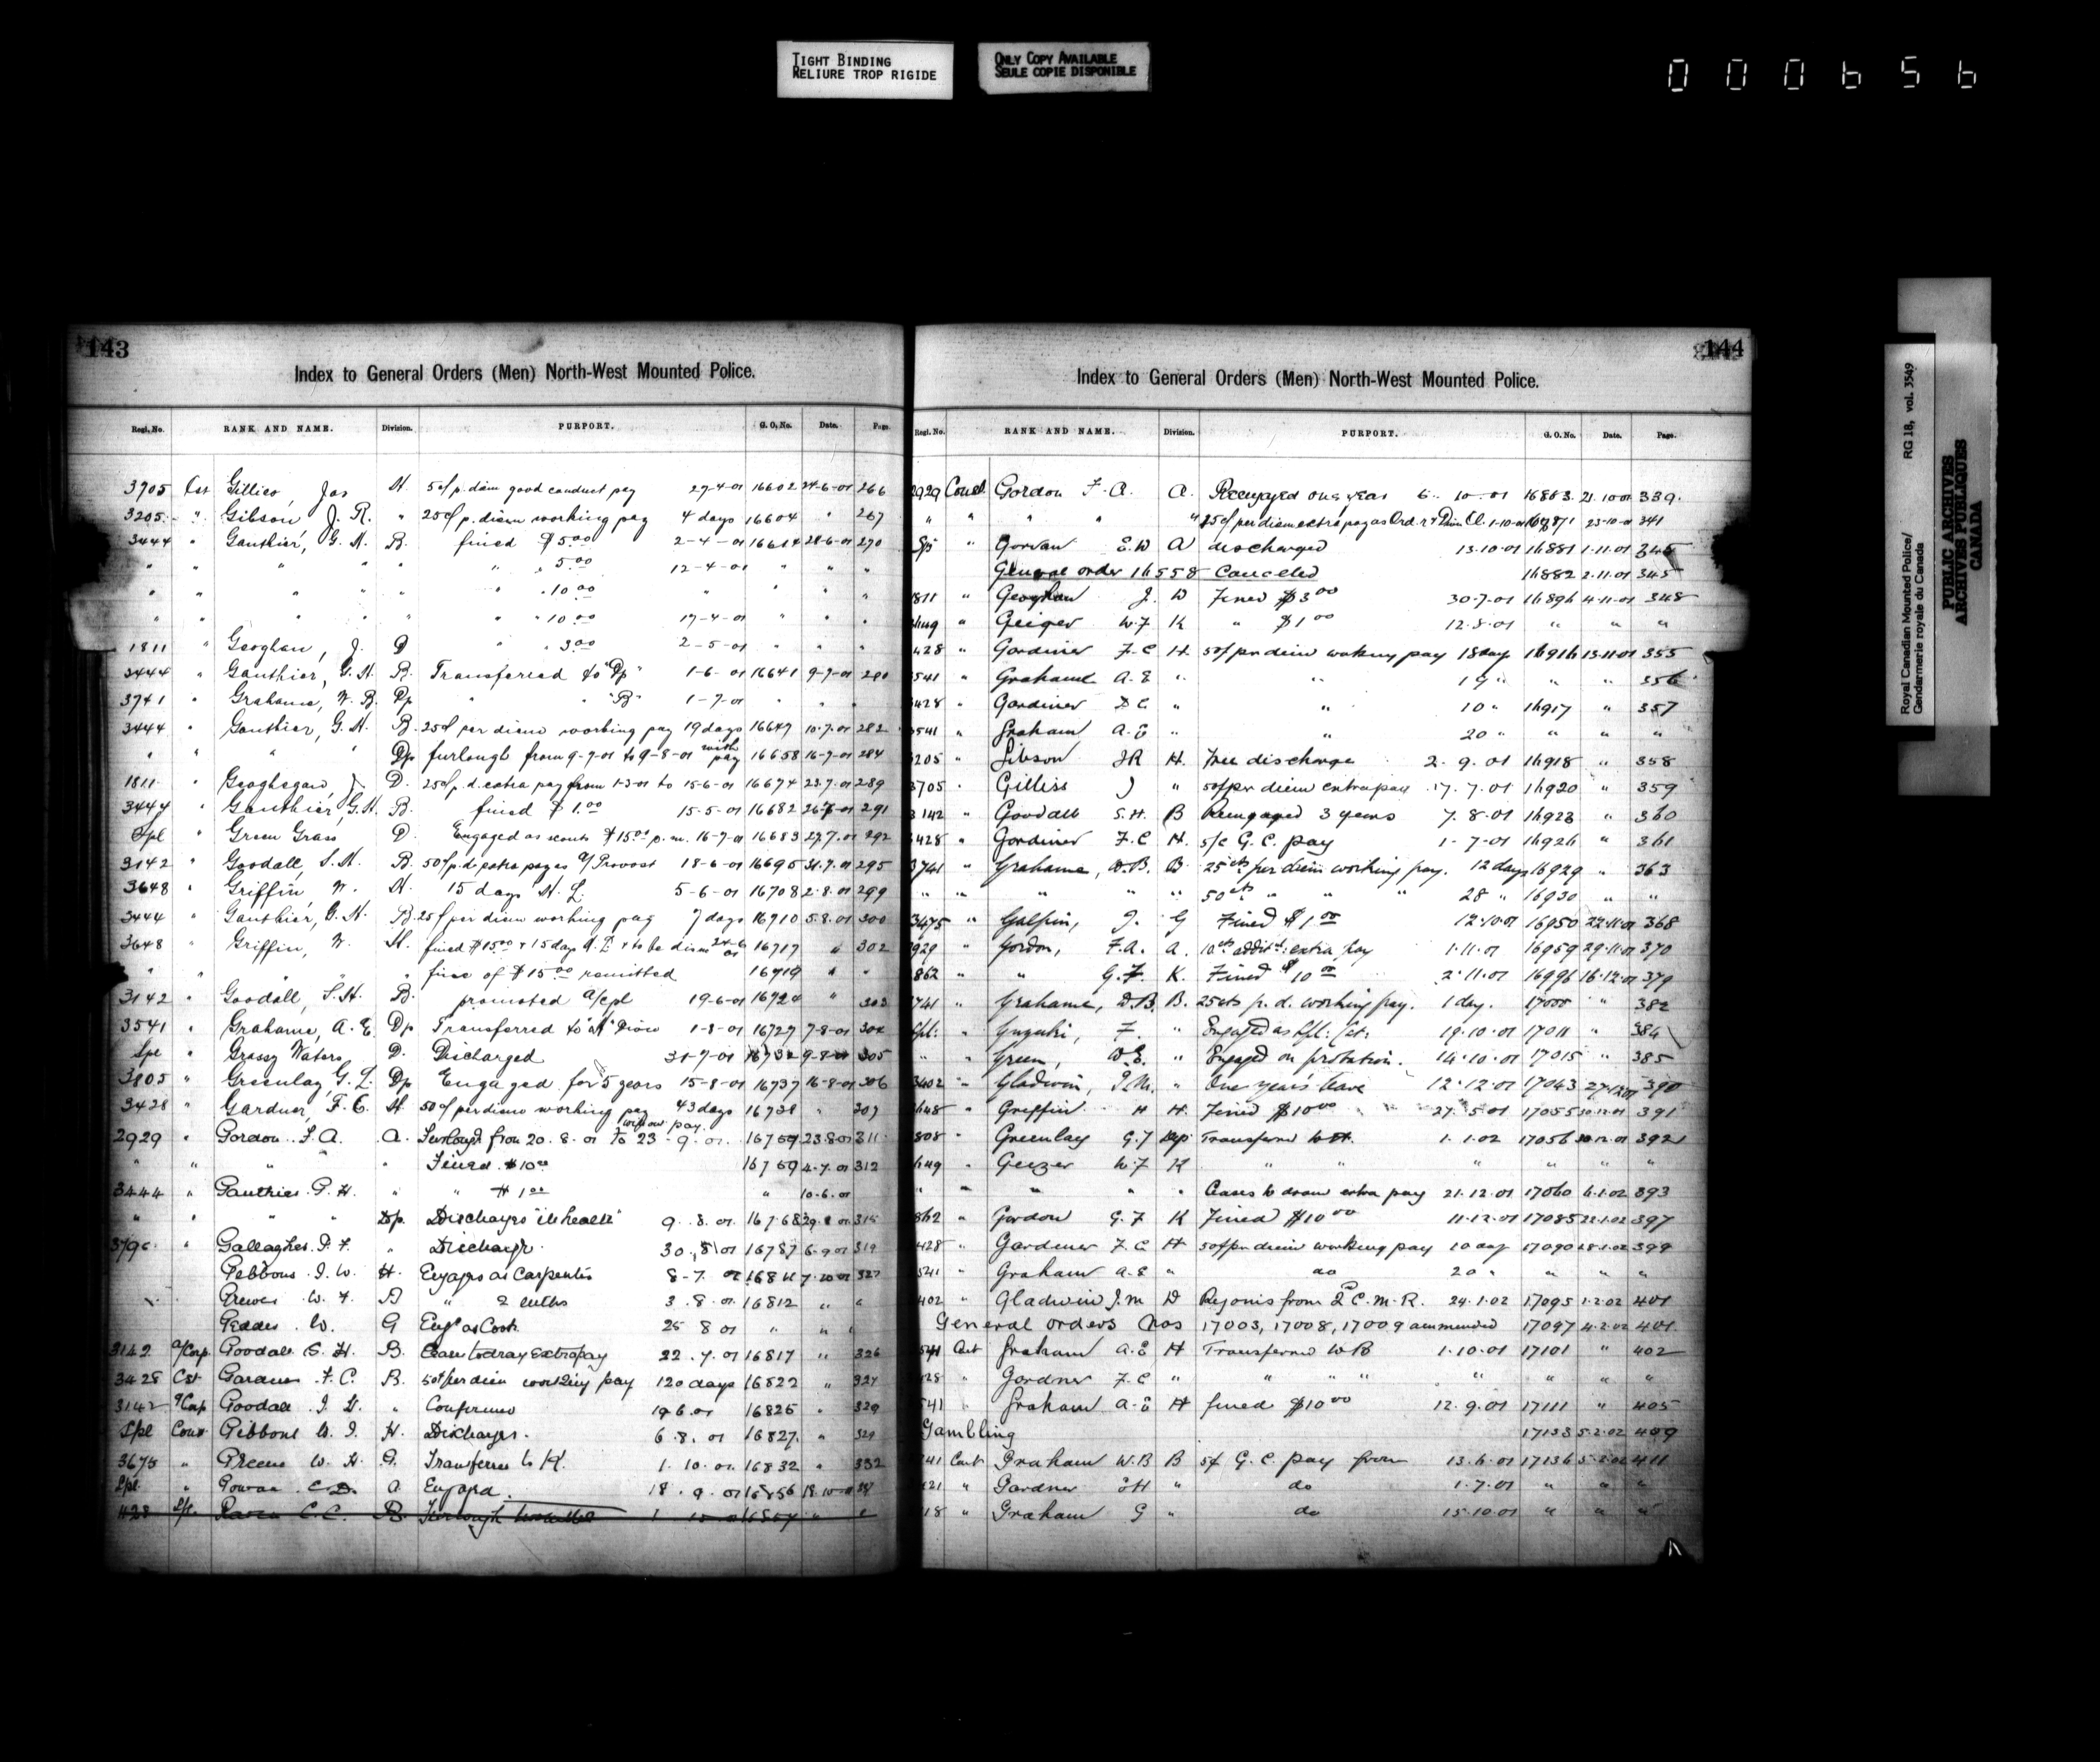 TIGHT BINDING
RELIURE TROP RIGIDE
ONLY COPY AVAILABLE
SEULE COPIE DISPONIBLE
000656
143
Index to General Orders (Men) North-West Mounted Police.
Regl. No. RANK AND NAME. Division. PURPORT. G. O. No. Date. Page.
3705 Cst Gillies, Jas H. 5c/ p. diem good conduct pay 27-4-01 16602 24-6-01 266
3205 " Gibson J. R. " 25c/ p. diem working pay 4 days 16604 " 267
3444 " Gauthier, G. H. B. fined $5.00 2-4-01 16614 28-6-01 270
" " " " " " 5.00 12-4-01 " " "
" " " " " " 10.00 " " " "
" " " " " " 10.00 17-4-01 " " "
1811 " Geoghan, J. D " " 3.00 2-5-01 " " "
3444 " Gauthier, G. H. B. Transferred to "Dp" 1-6-01 16641 9-7-01 280
3741 " Grahame, W. B. Dp " "B" 1-7-01 " " "
3444 " Gauthier, G. H. B. 25c/ per diem working pay 19 days 16647 10-7-01 282
" " " " Dp furlough from 9-7-01 to 9-8-01 with pay 16658 16-7-01 284
1811 " Geoghegan, J. D. 25c/ p. d. extra pay from 1-3-01 to 15-6-01 16674 23-7-01 289
3444 " Gauthier G. H. B. fined $1.00 15-5-01 16682 26-7-01 291
Spl " Green Grass D. Engaged as scout $15.00 p. m. 16-7-01 16683 27-7-01 292
3142 " Goodall, S. H. B. 50c/ p. d. extra pay as a/ Provost 18-6-01 16695 31-7-01 295
3648 " Griffin, W. H. 15 days H. L. 5-6-01 16708 2-8-01 299
3444 " Gauthier, G. H. B. 25c/ per diem working pay 7 days 16710 5-8-01 300
3648 " Griffin, W. H. fined $15.00 + 15 days H. L. + to be dism 24-6-01 16717 " 302
" " " " " fine of $15.00 remitted 16719 " "
3142 " Goodall, S. H. B. promoted a/cpl 19-6-01 16724 " 303
3541 " Grahame, A. E. Dp Transferred to "H" Divn 1-8-01 16727 7-8-01 304
Spl " Grassy Waters D. Discharged 31-7-01 16732 9-8-01 305
3805 " Greenlay G. L. Dp Engaged for 5 years 15-8-01 16737 16-8-01 306
3428 " Gardner, F. C. H. 50c/ per diem working pay 43 days 16738 " 307
2929 " Gordon F. A. A. Furlough from 20. 8. 01 to 23-9-01 without pay 23.8.01 311
" " " " Fined $10.00 16759 312
3444 " Gauthier G. H. " " $1.00 " 10.6.01
" " " " Dp. Discharged "ill health" 9. 8. 01 16768 29.8.01 315
" Gallagher " Discharge 30. 8. 01 16787 6-9-01 319
Gibbons J. W. H. Engages as Carpenter 8-7. 01 327
W. F. B " 3. 8. 01 16812 " "
Geddes W. G Engd as Cook 25 8 01 " " "
3142 a/Corp Goodall S. H. B. Cease to draw extra pay 22. 7. 01 16817 " 326
3428 Cst Gardner F. C. B. 50c per diem working pay 120 days 16822 " 327
3142 a/Corp Goodall " Confirmed 19 6 01 16825 " 329
Spl Const Gibbons W. J. H. Discharges. 6. 8. 01 16827 " 329
" Greene W. H. G. Transferred to K. 1. 10. 01 16832 " 332
Spl " Gowan A Engaged. 18. 9. 01 16856
C.C. Furlough
144
Index to General Orders (Men) North-West Mounted Police.
Regl. No. RANK AND NAME. Division. PURPORT. G. O. No. Date. Page.
2929 Const Gordon F. A. A. Reengaged one year 6. 10. 01 16863 21.10.01 339
" " " " " 25c/ per diem extra pay as Ord. 1-10-01 16871 23-10-01 341
Spl " Gowan E. W A discharged 13.10.01 16881 1.11.01 345
General order 16558 Canceled 16882 2.11.01 345
1811 " Geoghan J. D Fined $3.00 30.7.01 16896 4.11.01 348
" Geiger W. F K " $1.00 12.8.01 " " "
428 " Gardiner F. C H. 50c/ per diem working pay 18 days 16916 13.11.01 355
3541 " Grahame A. E " " 19 " " " 356
3428 " Gardiner F C " " 10 " 16917 " 357
3541 " Graham A. E " " 20 " " " "
3205 " Gibson J R H. Free discharge 2. 9. 01 16918 " 358
3705 " Gilliss J " 50c/ per diem extra pay 17. 7. 01 16920 " 359
3142 " Goodall S. H. B Reengaged 3 years 7. 8. 01 16923 " 360
3428 " Gardiner F. C H. 5/c G. C. pay 1-7-01 16926 " 361
3741 " Grahame, W. B. B. 25 cts per diem working pay. 12 days 16929 " 363
" " " " " 50 cts " " " 28 " 16930 " "
3475 " Galpin, J. G Fined $1.00 12.10.01 16950 22.11.01 368
2929 " Gordon, F. A. A. 10 cts addit: extra pay 1.11.01 16959 29.11.01 370
862 " " G. F. K. Fined $10.00 2.11.01 16996 16.12.01 379
3741 " Grahame, W. B. B. 25 cts p. d. working pay. 1 day. 17000 " 382
Spl. " F. " Engaged as Spl. Cst. 19.10.01 17011 " 384
" " Green, W. E. " Engaged on probation. 14.10.01 17015 " 385
3402 " Gladwin, J. M. " One year's leave 12.12.01 17043 27.12.01 390
3648 " Griffin H H. Fined $10.00 27. 5.01 17055 30.12.01 391
3805 " Greenlay G. F Dep Transferred to H. 1. 1. 02 17056 30.12.01 392
" Geiger W. F K " " " " "
" " " " " Ceases to draw extra pay 21. 12. 01 17060 6.1.02 393
862 " Gordon G. F K Fined $10.00 11.12.01 17085 22.1.02 397
3428 " Gardener F. C. H 50c/ per diem working pay 10 day 17090 28.1.02 399
3541 " Graham A. E " do 20 " " " "
3402 " Gladwin J. M D Rejoins from 2nd C. M. R. 24.1.02 17095 1.2.02 401
General orders Nos 17003, 17008, 17009 ammended 17097 4.2.02 401
3541 Cst Graham A. E H Transferred to B 1.10.01 17101 " 402
3428 " Gardner F. C " " " " " " " "
3541 " Graham A. E H fined $10.00 12. 9. 01 17111 " 405
Gambling 17133 5.2.02 409
3741 Const Graham W. B B 5c G. C. pay from 13.6.01 17136 5.2.02 411
" Gardner " do 1.7.01 " " "
" Graham G " do 15.10.01 " " "
Royal Canadian Mounted Police/
Gendarmerie royale du Canada
RG 18, vol. 3549
PUBLIC ARCHIVES
ARCHIVES PUBLIQUES
CANADA